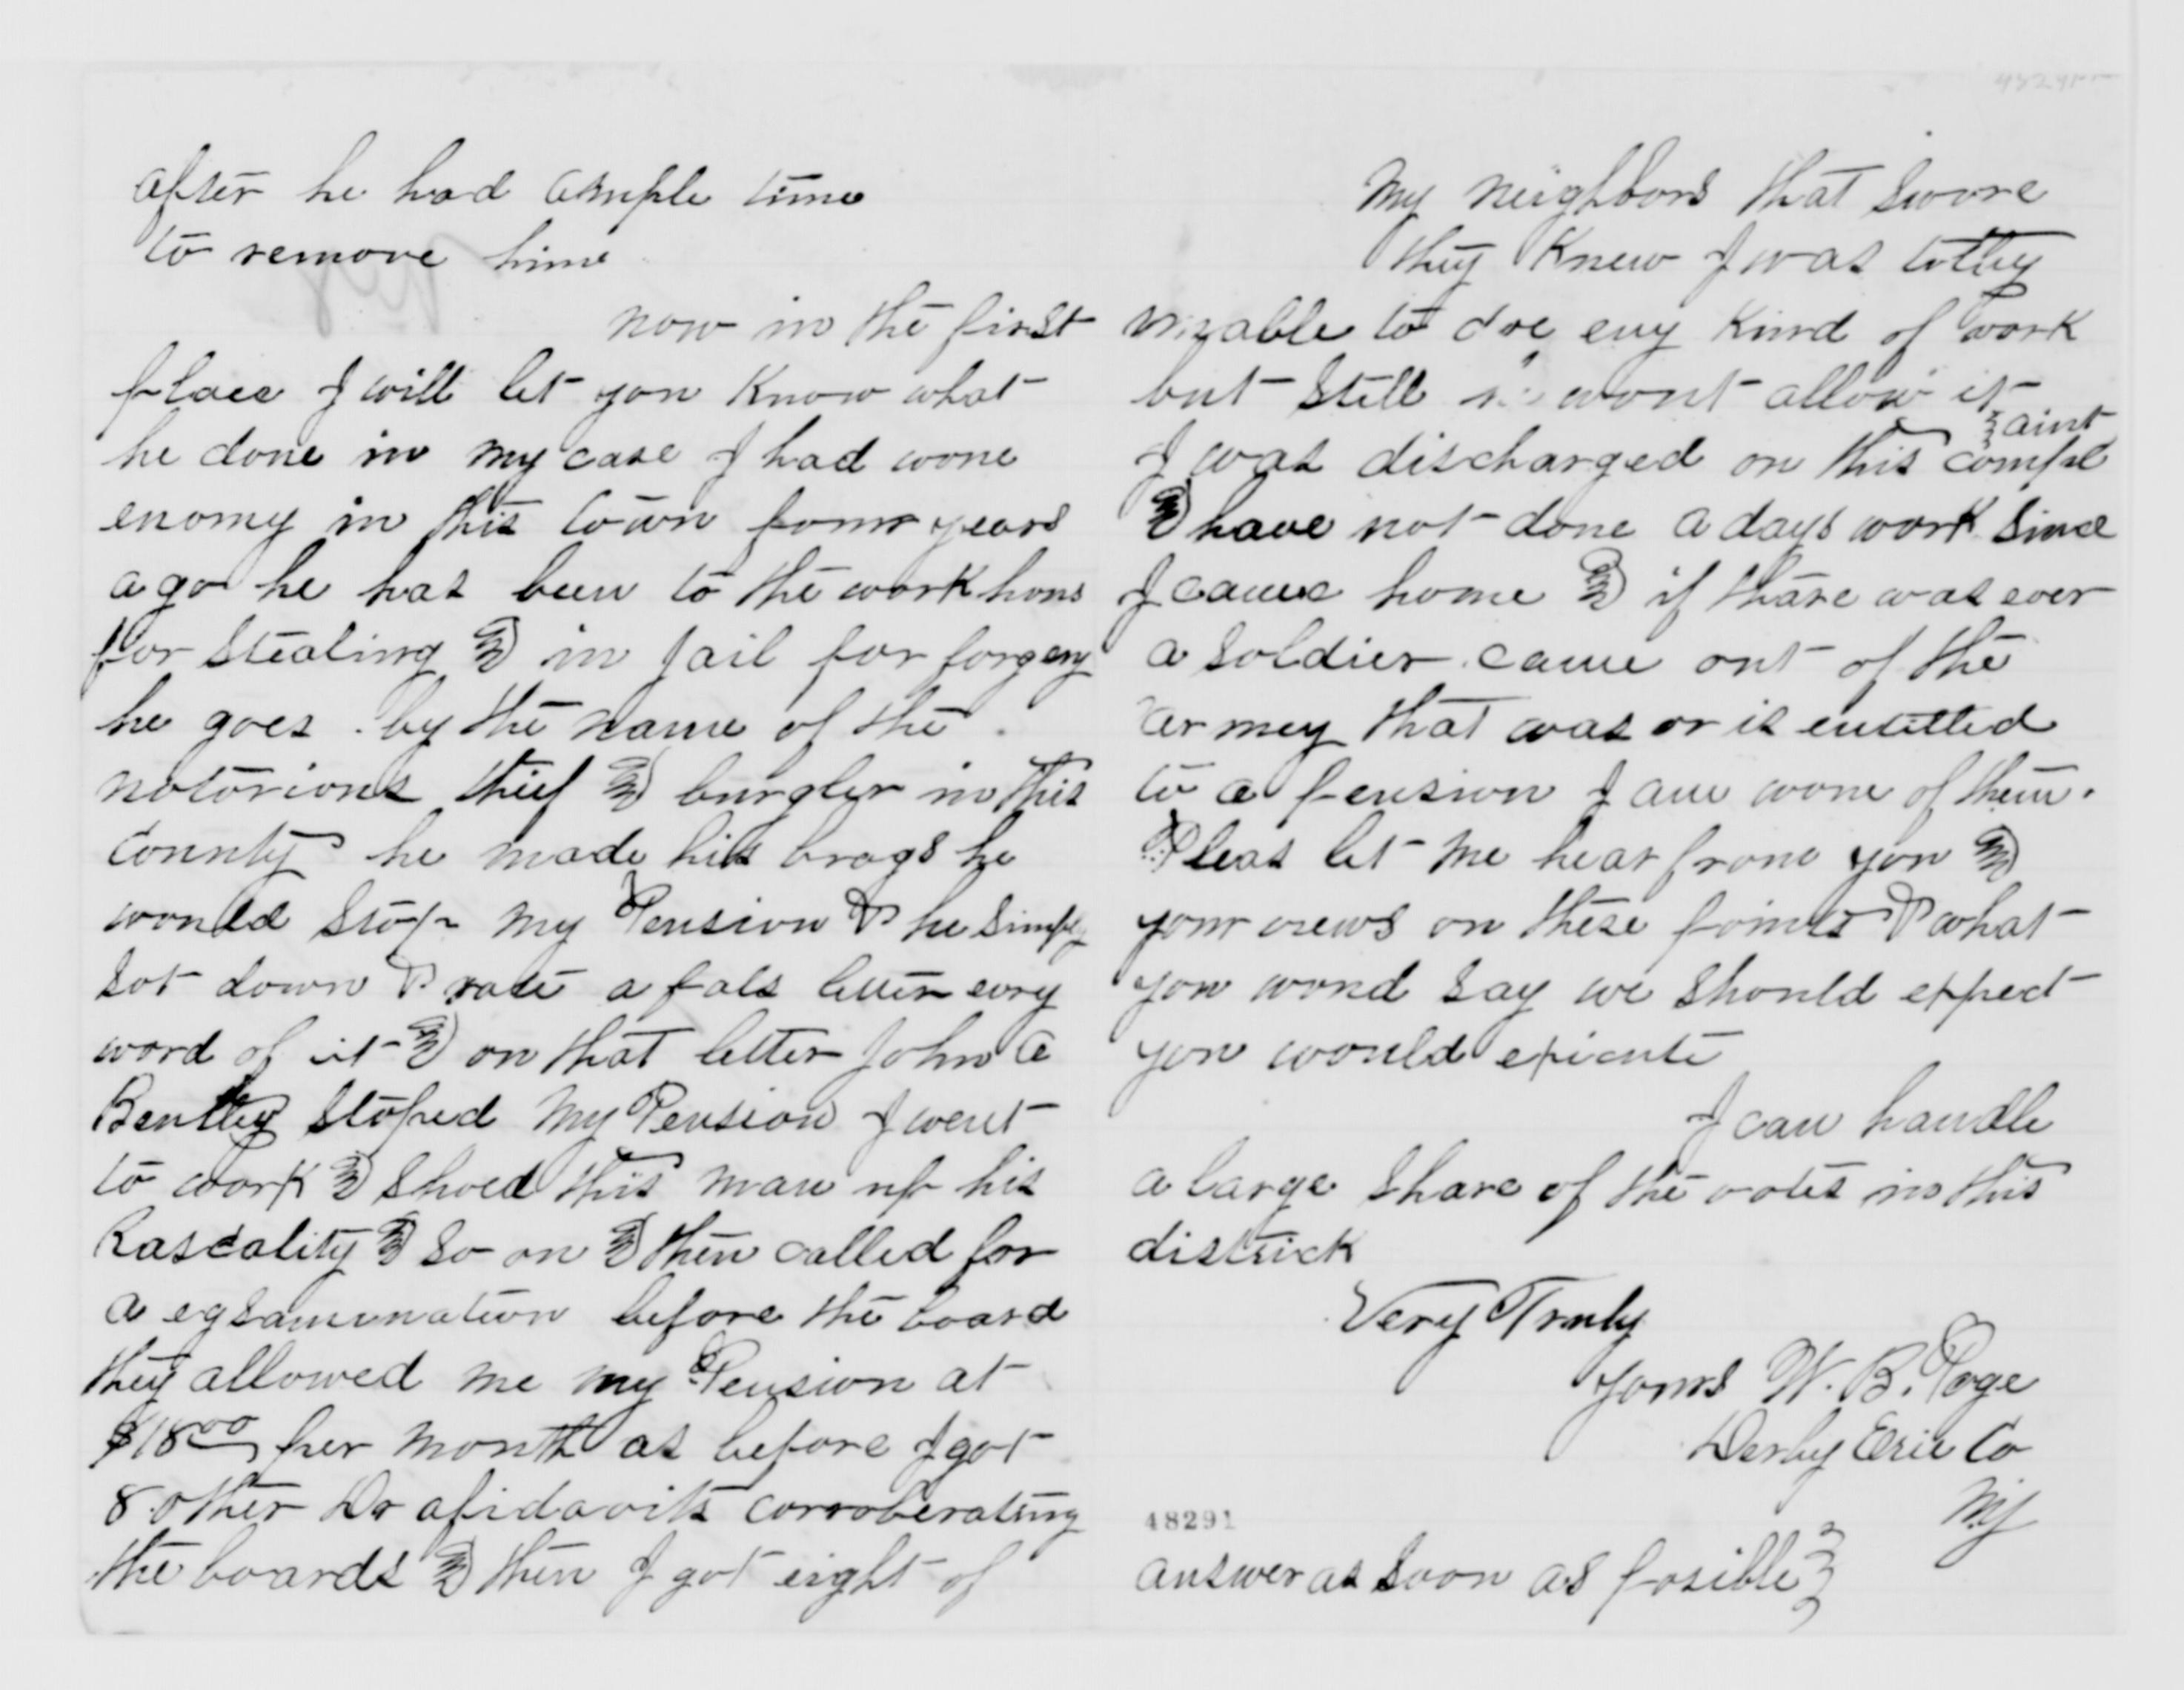 after he had ample time
to remove hime
now in the first
place I will let you Know what
he done in my case I had wone
enomy in this town four years
ago he has been to the work hous
for stealing & in jail for forgery
he goes by the name of the
notorious thief & burgler in this
county he made his brags he
would stop my Pension & he simply
sot down & rote a fals letter evry
word of it & on that letter John A
Bentley stoped my Pension I went
to work & shoed this man up his
Rascality & so on & then called for
a egsamination before the board
they allowed me my Pension at
$18 00 per month as before I got
8 other Dr afidavits corroberating
the boards & then I got eight of
my neighbors that swore
they Knew I was totley
unable to doe eny Kind of work
but still wont allow it
I was discharged on this complaint
& have not done a days work since
I came home & if thare was ever
a soldier came out of the
armey that was or is entitled
to a pension I am wone of them.
Pleas let me hear frome you &
your views on these points & what
you woud say we should expect
you would
I can handle
a large share of the votes in this
districk
Very Truly
yours W. B. Page
Derby Erie Co
NY
48291
answer as soon as posible